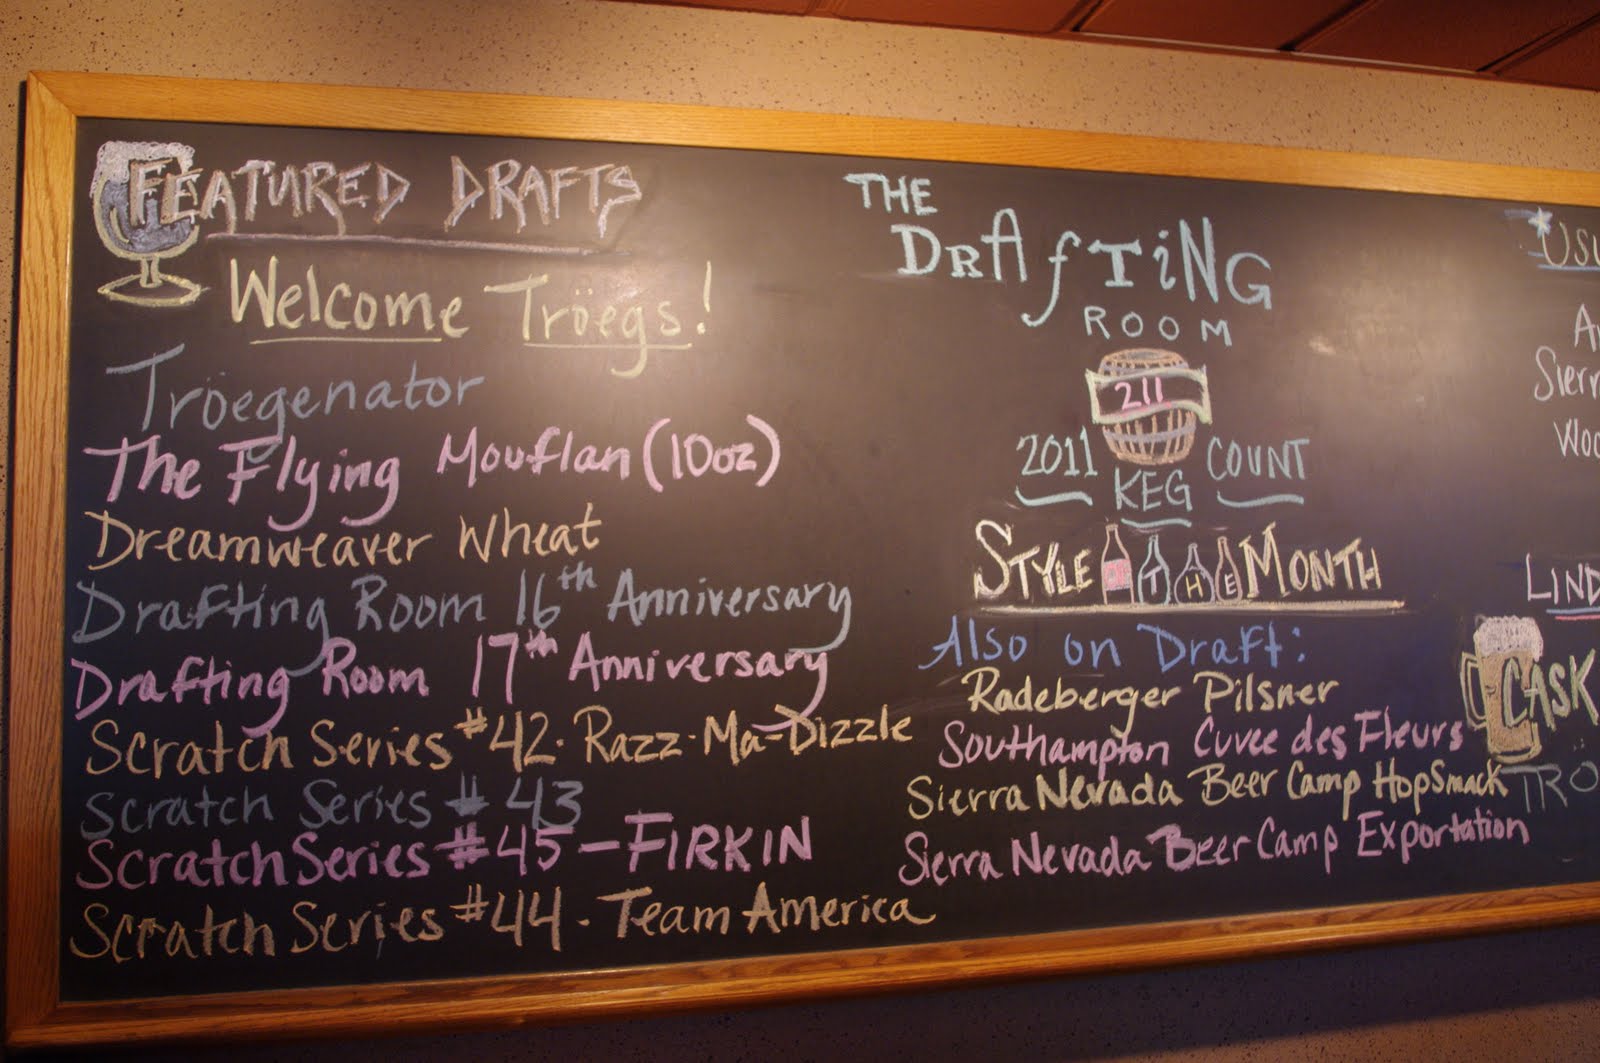 FEATURED DRAFTS
Welcome Tröegs!
Tröegenator
The Flying Mouflan (10oz)
Dreamweaver Wheat
Drafting Room 16th Anniversary
Drafting Room 17th Anniversary
Scratch Series #42 · Razz·Ma-Dizzle
Scratch Series #43
Scratch Series #45 - FIRKIN
Scratch Series #44 · Team America
THE
DRAfTiNG
ROOM
211
2011 KEG COUNT
STYLE OF THE MONTH
Also on Draft:
Radeberger Pilsner
Southampton Cuvee des Fleurs
Sierra Nevada Beer Camp HopSmack
Sierra Nevada Beer Camp Exportation
CASK